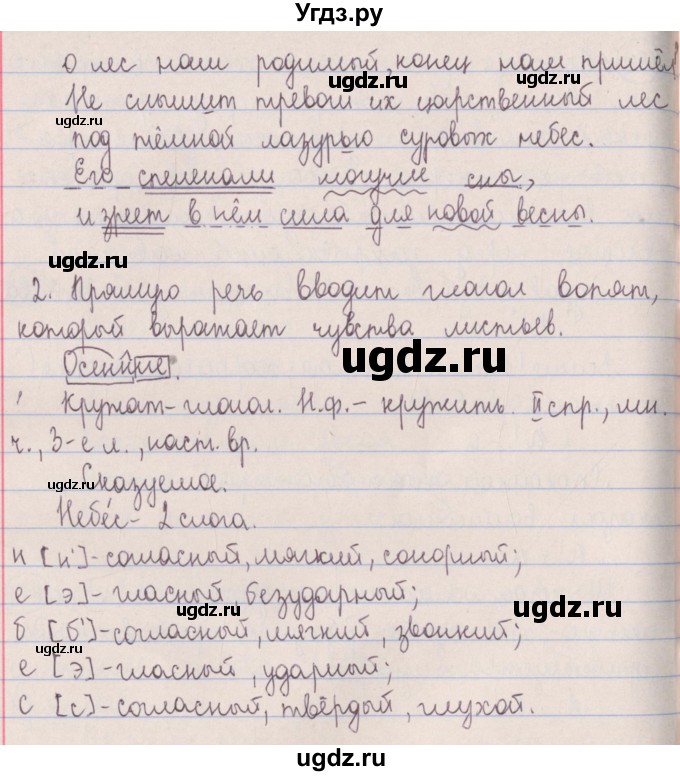 Угдз.ру
О лес наш родимый, конец наш пришёл!
ugdz.ru
ugdz.ru
Не слышит тревоги их царственный лес
ugdz.ru
под тёмной лазурью суровых небес.
Его спеленали могучие сны,
и зреет в нём сила для новой весны.
ugdz.ru
2. Прямую речь вводит глагол вопят,
который выражает чувства листьев.
ugdz.ru
Осенние.
Кружат – глагол. Н.ф. – кружить. II спр., мн.
ч., 3-е л., наст. вр.
ugdz.ru
Сказуемое.
Небе́с – 2 слога.
н [н'] – согласный, мягкий, сонорный;
е [э] – гласный, безударный;
ugdz.ru
ugdz.ru
б [б'] – согласный, мягкий, звонкий;
ugdz.ru
е [э] – гласный, ударный;
ugdz.ru
с [с] – согласный, твёрдый, глухой.
ugdz.ru
ugdz.ru